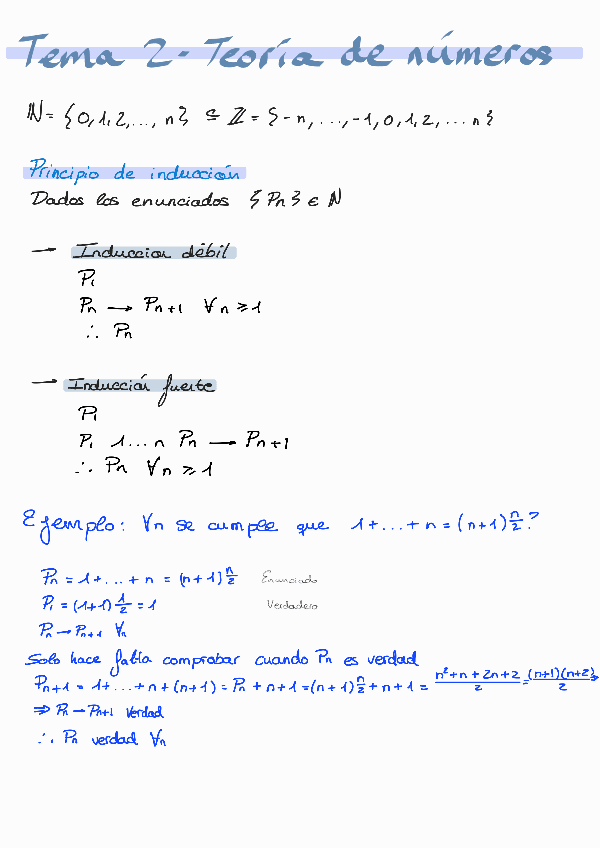 Tema 2 - Teoría de números
ℕ = {0, 1, 2, ..., n} ⊆ ℤ = {-n, ..., -1, 0, 1, 2, ... n}
Principio de inducción
Dados los enunciados {Pn} ∈ ℕ
→ Induccion débil
P₁
Pn → Pn+1 ∀n ≥ 1
∴ Pn
→ Inducción fuerte
P₁
P₁ 1...n Pn → Pn+1
∴ Pn ∀n ≥ 1
Ejemplo: ∀n se cumple que 1+...+n = (n+1) n/2?
Pn = 1+...+n = (n+1) n/2 Enunciado
P₁ = (1+1) 1/2 = 1 Verdadero
Pn → Pn+1 ∀n
Solo hace falta comprobar cuando Pn es verdad
Pn+1 = 1+...+n+(n+1) = Pn + n+1 = (n+1) n/2 + n+1 = (n²+n+2n+2)/2 = (n+1)(n+2)/2 ⇒
⇒ Pn → Pn+1 verdad
∴ Pn verdad ∀n